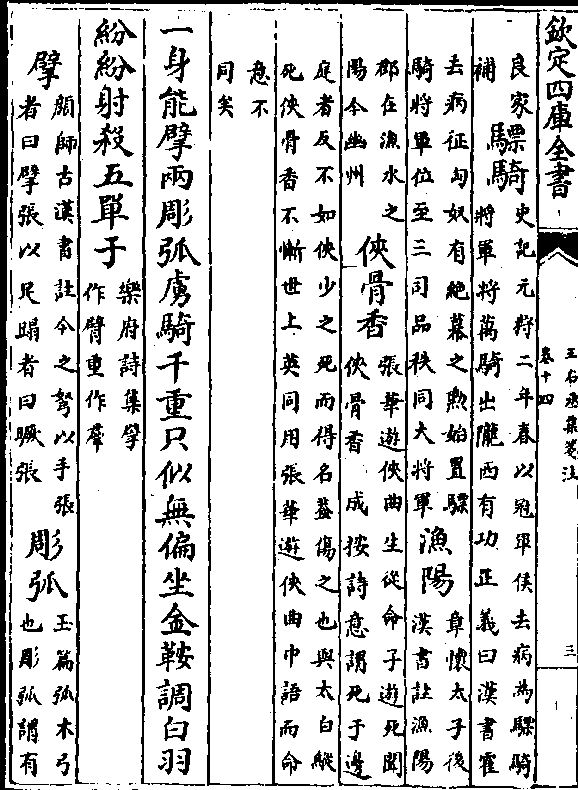 欽定四庫全書
王右丞集箋注
卷十四
三
良家
補
驃騎
史記元狩二年春以冠軍侯去病為驃騎
將軍將萬騎出隴西有功正義曰漢書霍
去病征匈奴有絶幕之勲始置驃
騎將軍位至三司品秩同大將軍
漁陽
章懷太子後
漢書註漁陽
郡在漁水之
陽今幽州
俠骨香
張華遊俠曲生從命子遊死聞
俠骨香 成按詩意謂死于邊
庭者反不如俠少之死而得名葢傷之也與太白縱
死俠骨香不慚世上英同用張華遊俠曲中語而命
意不
同矣
一身能擘兩彫弧虜騎千重只似無偏坐金鞍調白羽
紛紛射殺五單于
樂府詩集擘
作臂重作羣
擘
顔師古漢書註今之弩以手張
者曰擘張以足蹋者曰蹶張
彫弧
玉篇弧木弓
也彫弧謂有